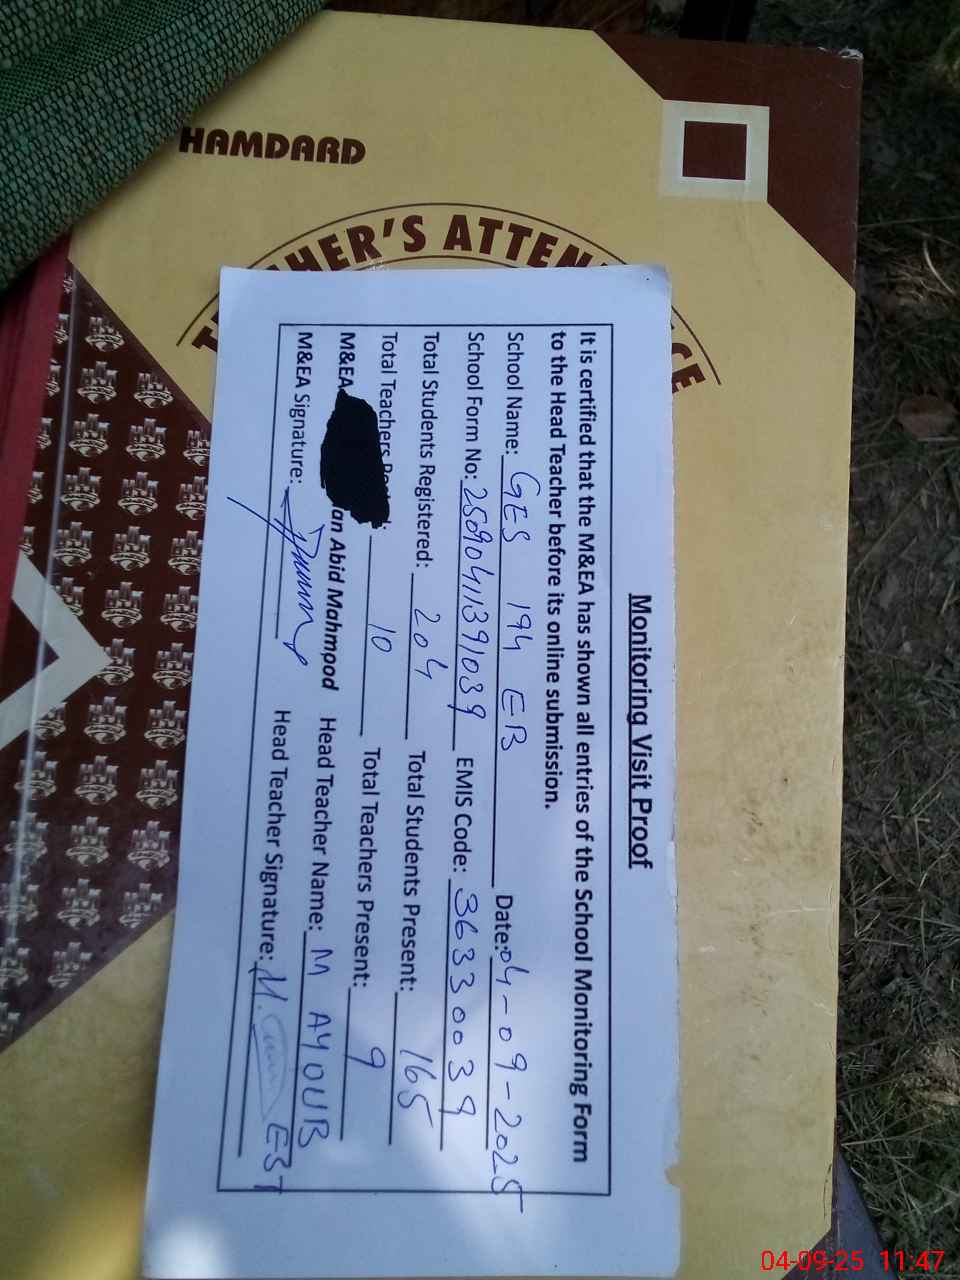 HAMDARD
TEACHER'S ATTENDANCE
Monitoring Visit Proof
It is certified that the M&EA has shown all entries of the School Monitoring Form
to the Head Teacher before its online submission.
School Name: GES 194 EB Date: 04-09-2025
School Form No: 25090411391039 EMIS Code: 36330039
Total Students Registered: 204 Total Students Present: 165
Total Teachers : 10 Total Teachers Present: 9
M&EA Abid Mahmpod Head Teacher Name: M AYOUB
M&EA Signature: Head Teacher Signature: M. EST
04-09-25 11:47